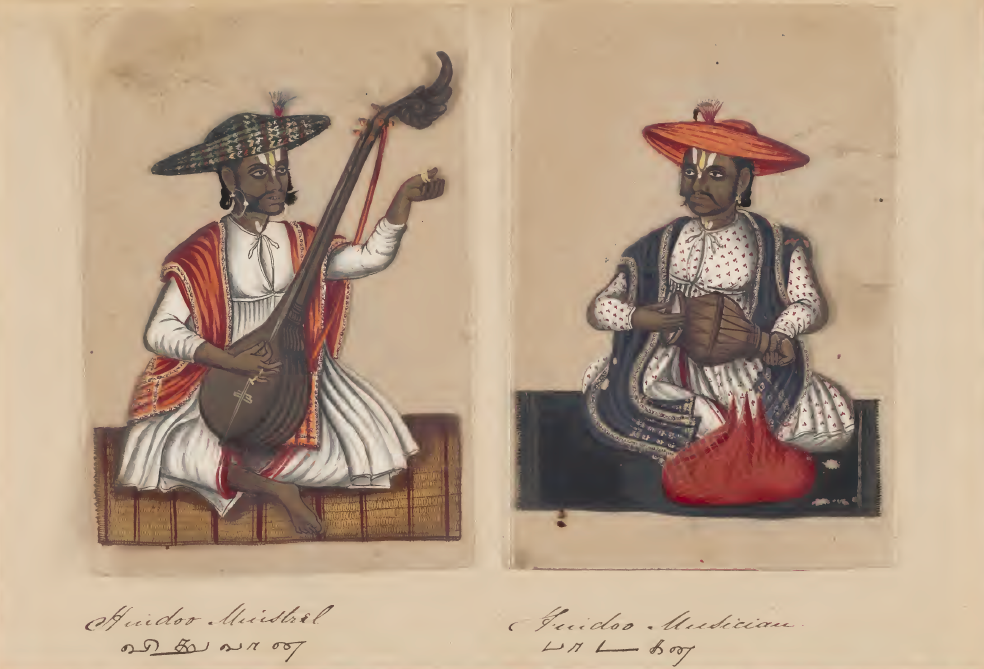 Hindoo Minstrel
Hindoo Musician
பாடகன